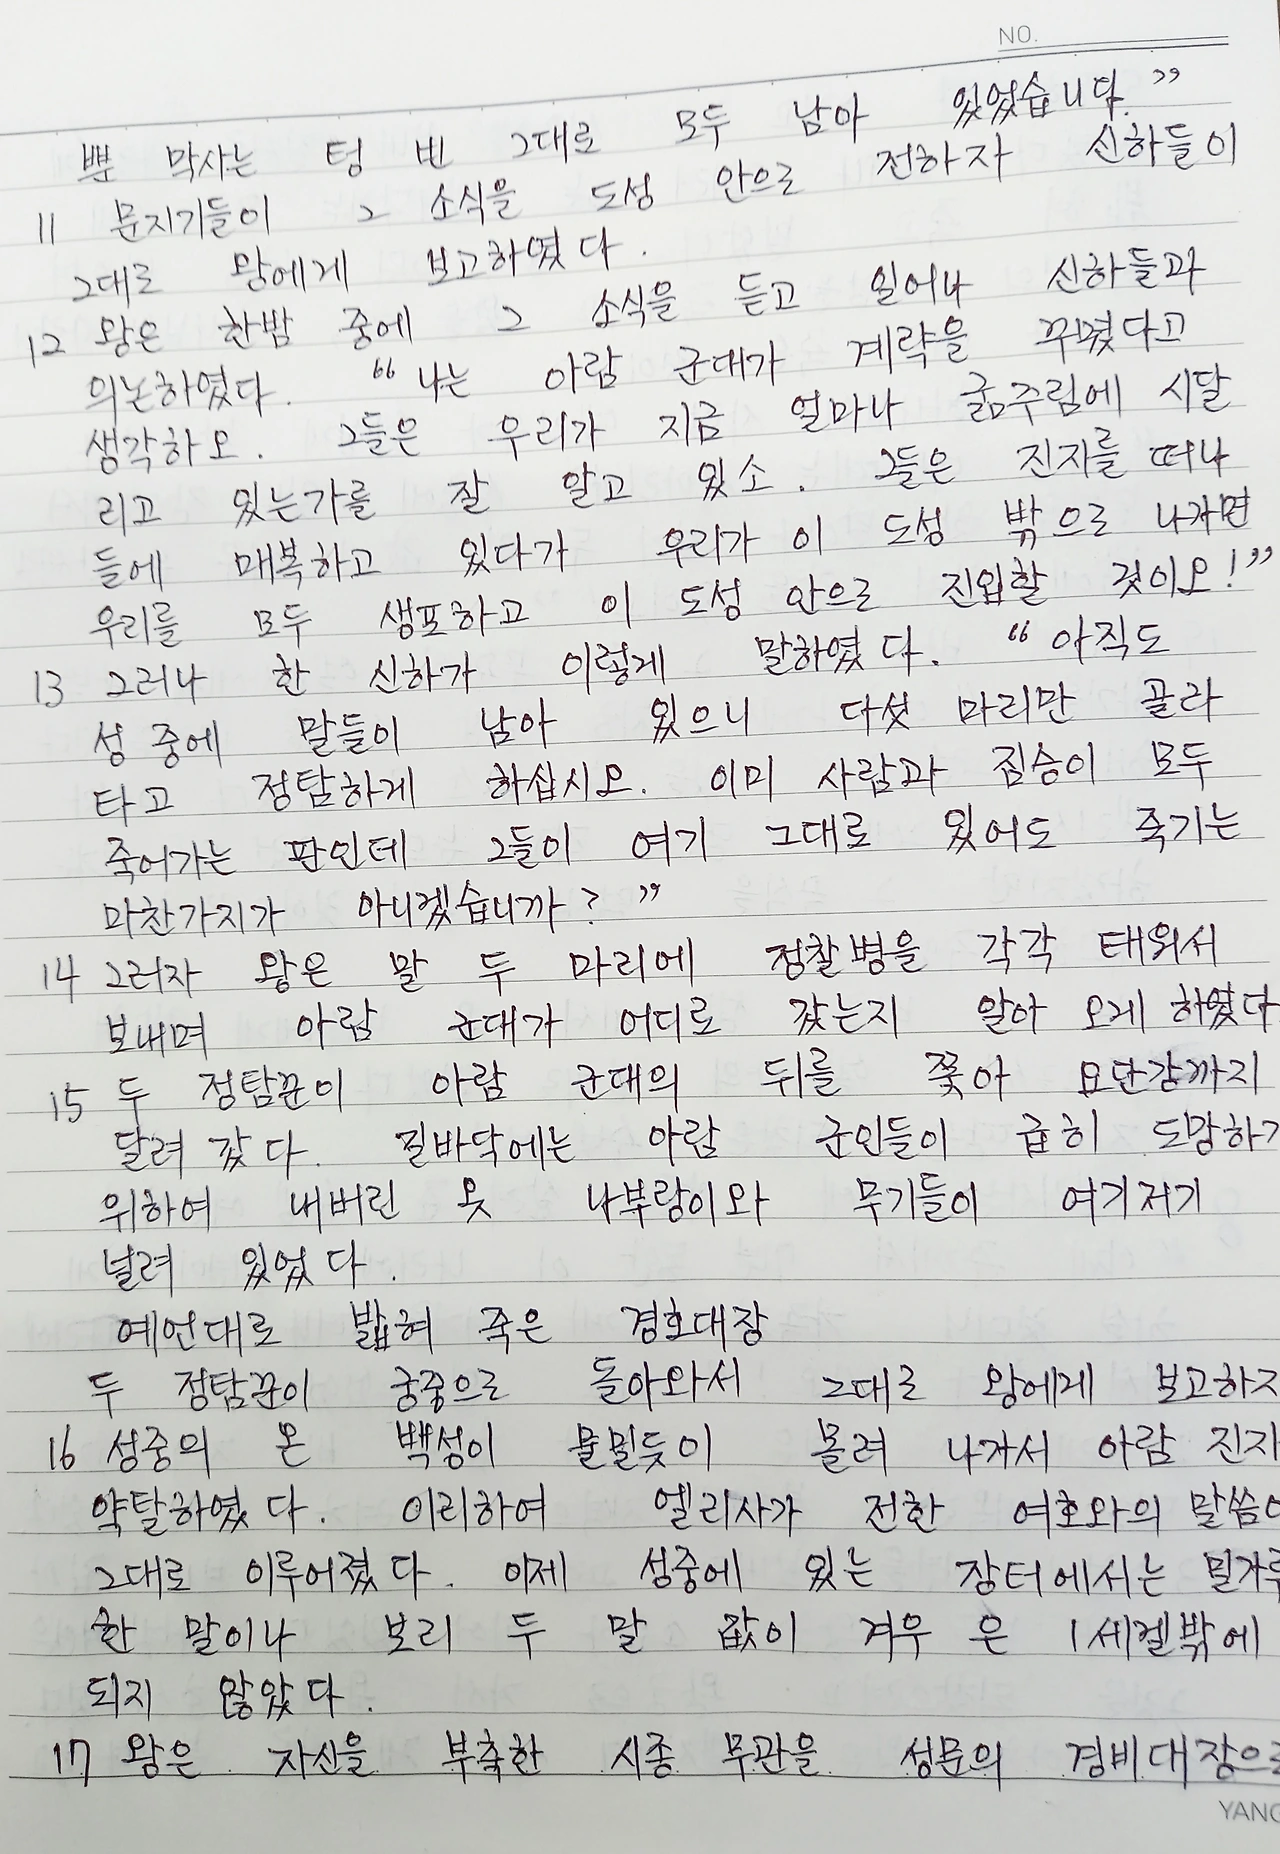 NO.
뿐 막사는 텅 빈 그대로 모두 남아 있었습니다.”
11 문지기들이 그 소식을 도성 안으로 전하자 신하들이
그대로 왕에게 보고하였다.
12 왕은 한밤 중에 그 소식을 듣고 일어나 신하들과
의논하였다. “나는 아람 군대가 계략을 꾸몄다고
생각하오. 그들은 우리가 지금 얼마나 굶주림에 시달
리고 있는가를 잘 알고 있소. 그들은 진지를 떠나
들에 매복하고 있다가 우리가 이 도성 밖으로 나가면
우리를 모두 생포하고 이 도성 안으로 진입할 것이오!”
13 그러나 한 신하가 이렇게 말하였다. “아직도
성 중에 말들이 남아 있으니 다섯 마리만 골라
타고 정탐하게 하십시오. 이미 사람과 짐승이 모두
죽어가는 판인데 그들이 여기 그대로 있어도 죽기는
마찬가지가 아니겠습니까?”
14 그러자 왕은 말 두 마리에 정찰병을 각각 태워서
보내며 아람 군대가 어디로 갔는지 알아 오게 하였다
15 두 정탐꾼이 아람 군대의 뒤를 쫓아 요단강까지
달려 갔다. 길바닥에는 아람 군인들이 급히 도망하기
위하여 내버린 옷 나부랑이와 무기들이 여기저기
널려 있었다.
예언대로 밟혀 죽은 경호대장
두 정탐꾼이 궁중으로 돌아와서 그대로 왕에게 보고하자
16 성중의 온 백성이 물밀듯이 몰려 나가서 아람 진지
약탈하였다. 이리하여 엘리사가 전한 여호와의 말씀이
그대로 이루어졌다. 이제 성중에 있는 장터에서는 밀가루
한 말이나 보리 두 말 값이 겨우 은 1세겔밖에
되지 않았다.
17 왕은 자신을 부축한 시종 무관을 성문의 경비대장으로
YANG